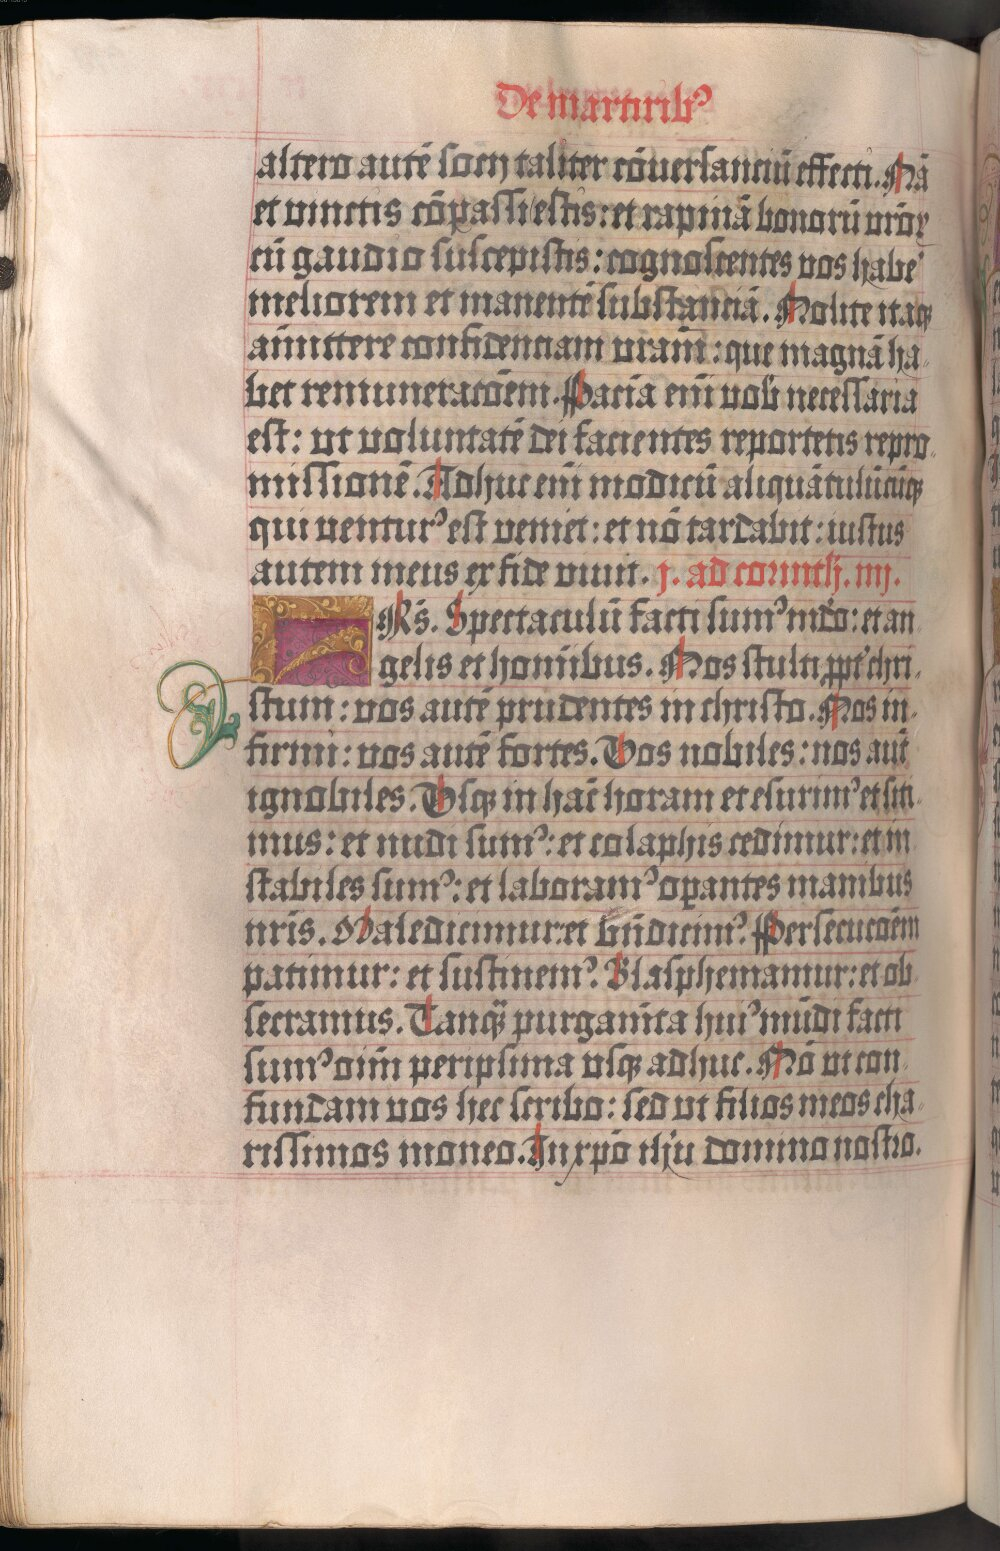 De martiribꝰ
altero autē socij taliter cōversanciū effecti. Nā
et vinctis cōpassi estis: et rapinā bonorū vrōꝝ
cū gaudio suscepistis: cognoscentes vos habe
meliorem et manentē substanciā. Nolite itaqꝫ
amittere confidenciam vram̄: que magnā ha-
bet remuneracōem. Paciā em̄ vob̄ necessaria
est: vt voluntatē dei facientes reportetis repro-
missionē. Adhuc em̄ modicū aliquātulū
qui venturꝰ est veniet: et nō tardabit: iustus
autem meus ex fide vivit. j. ad corinth. iiij.
FRs̄. Spectaculū facti sumꝰ mūdo: et an
gelis et homībus. Nos stulti ꝓpt' chri-
stum: vos autē prudentes in christo. Nos in-
firmi: vos autē fortes. Vos nobiles: nos aut̄
ignobiles. Vsqꝫ in hāc horam et esurimꝰ et siti-
mus: et nudi sumꝰ: et colaphis cedimur: et in
stabiles sumꝰ: et laboramꝰ oꝑantes manibus
nr̄is. Maledicimur: et bn̄dicimꝰ. Persecucōem
patimur: et sustinemꝰ. Blasphemamur: et ob
secramus. Tanqꝫ purgam̄ta huiꝰ mūdi facti
sumꝰ oim̄ peripsima vsqꝫ adhuc. Nō vt con-
fundam vos hec scribo: sed vt filios meos cha-
rissimos moneo. In xp̄o ih̄u domino nostro.